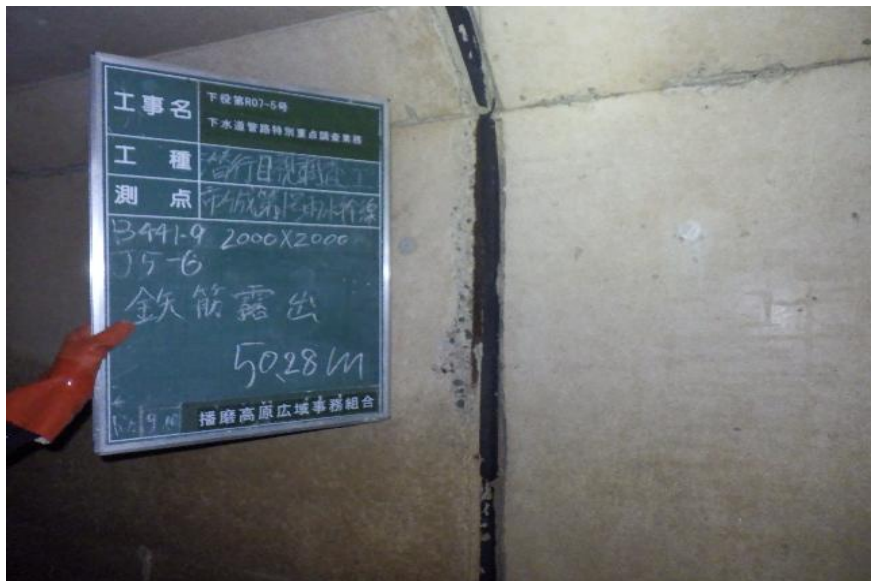 工事名
下役第R07-5号
下水道管路特別重点調査業務
工種
管行目視調査工
測点
B441-9 2000×2000
J5-6
鉄筋露出
50.28m
播磨高原広域事務組合